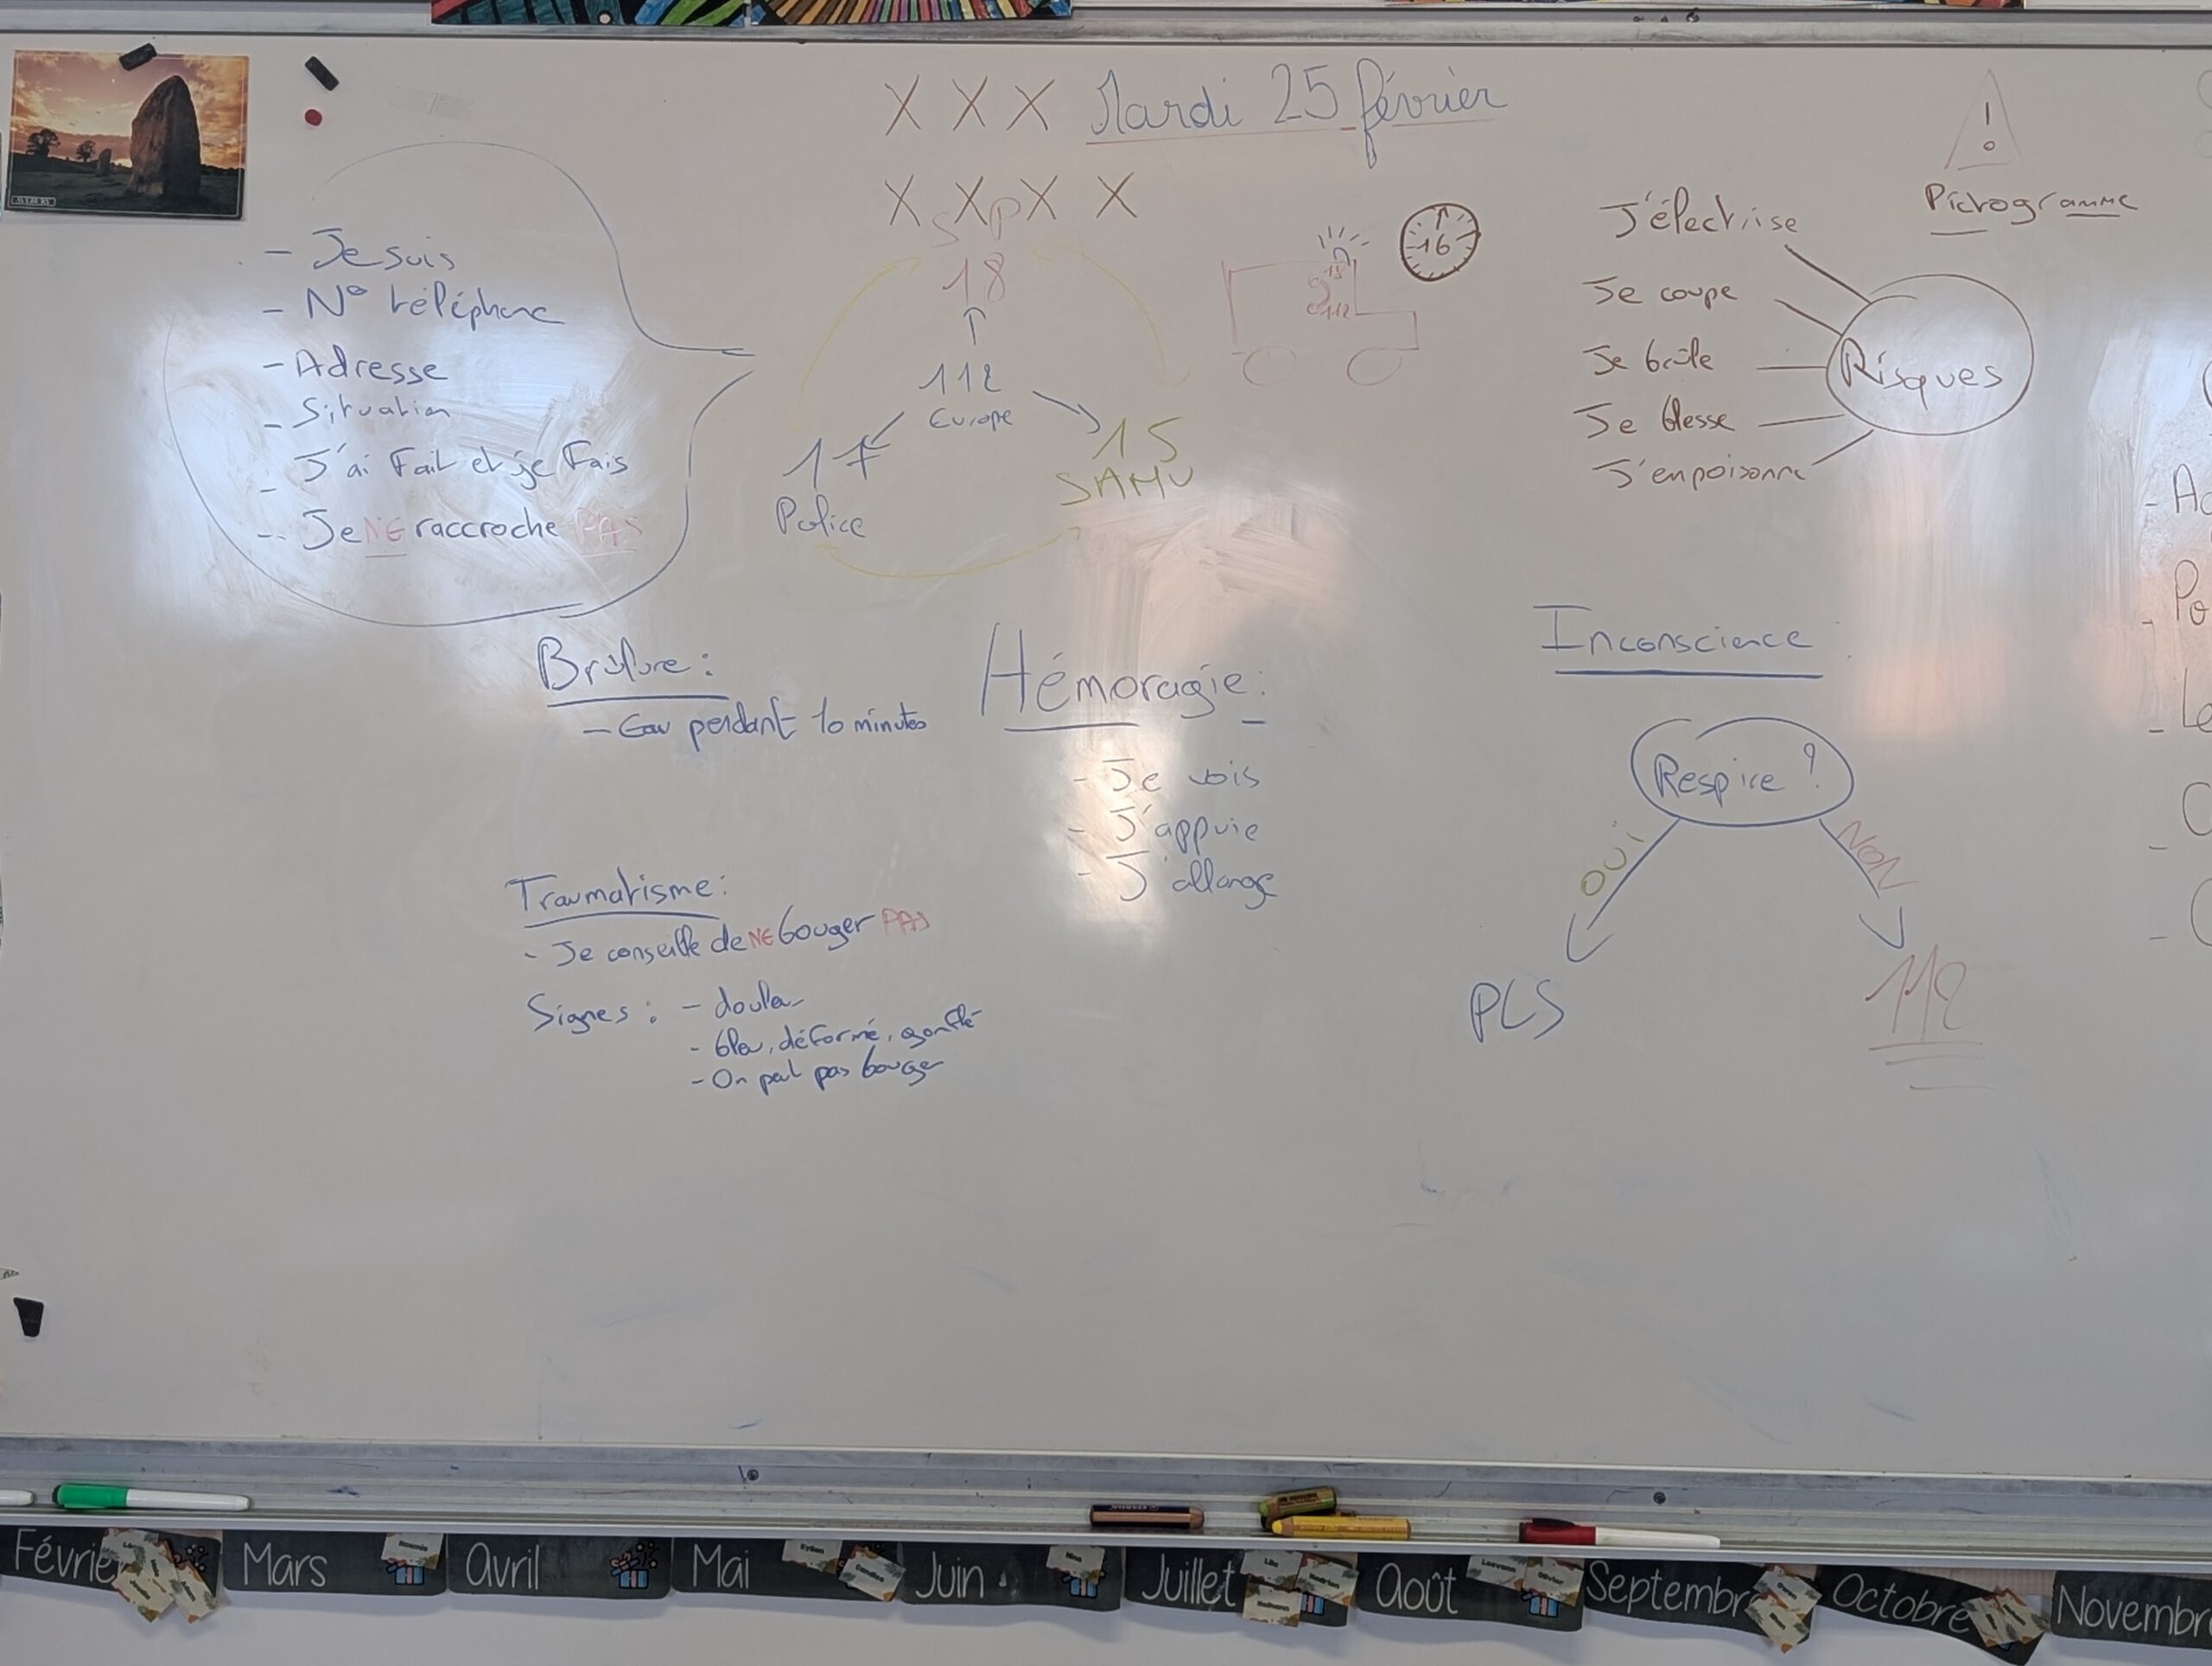 X X X Mardi 25 février
X X X X
SP
18
112
Europe
17
Police
15
SAMU
15
112
16
- Je suis
- N° téléphone
- Adresse
- Situation
- J'ai Fait et je Fais
- Je NE raccroche PAS
!
Pictogramme
J'électrise
Je coupe
Je brûle
Je blesse
J'empoisonne
Risques
Brûlure :
- Eau pendant 10 minutes
Hémoragie :
- Je vois
- J'appuie
- J'allonge
Traumatisme :
- Je conseille de NE bouger PAS
Signes : - douleur
- bleu, déformé, gonflé
- On peut pas bouger
Inconscience :
Respire ?
OUI
NON
PLS
112
- Ad
- Po
- Le
Février
Mars
Avril
Mai
Juin
Juillet
Août
Septembre
Octobre
Novembr